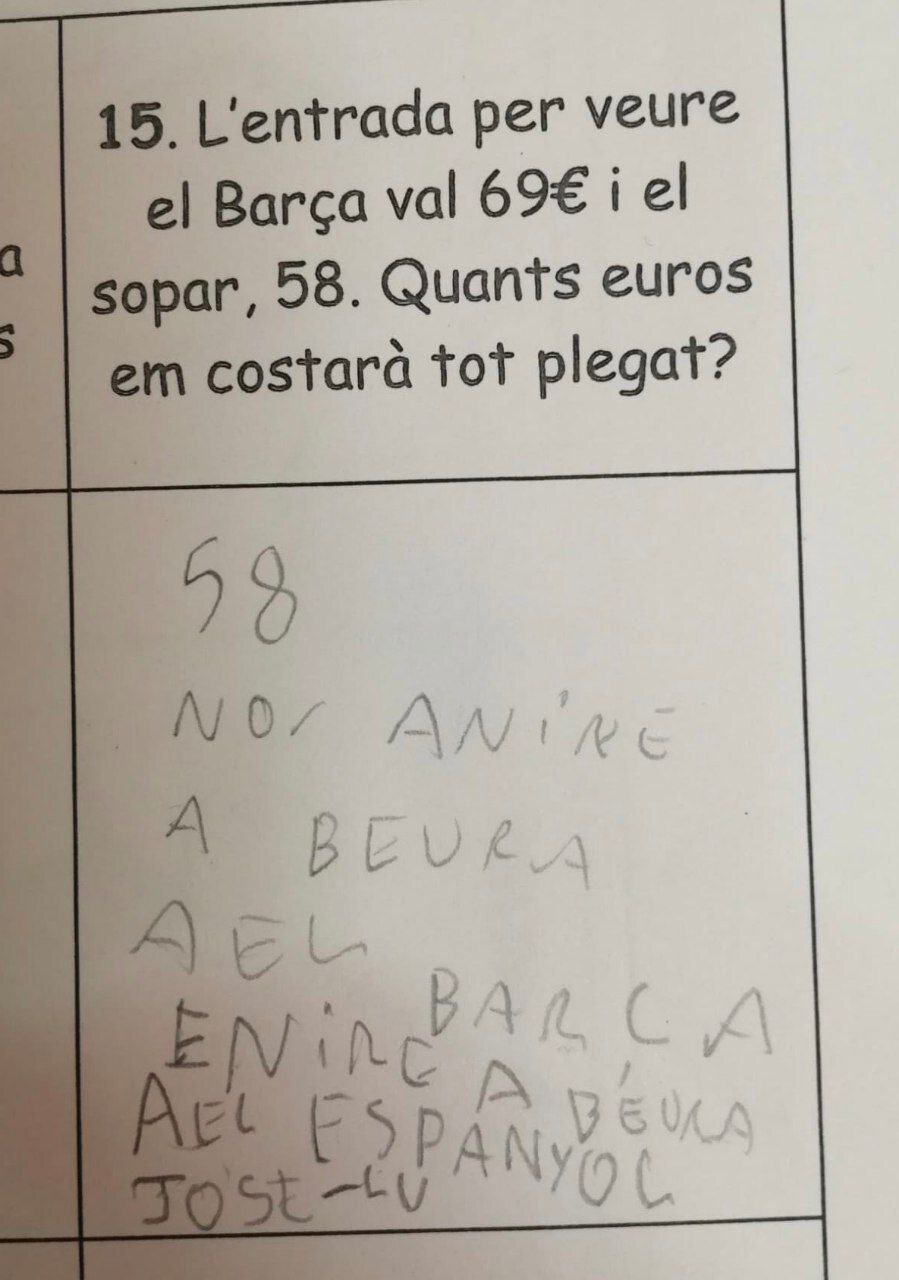 15. L'entrada per veure
el Barça val 69€ i el
sopar, 58. Quants euros
em costarà tot plegat?
a
s
58
NOI ANIRE
A BEURA
AEL
BARÇA
ENIRE A BEURA
AEL ESPANYOL
JOSE-LU